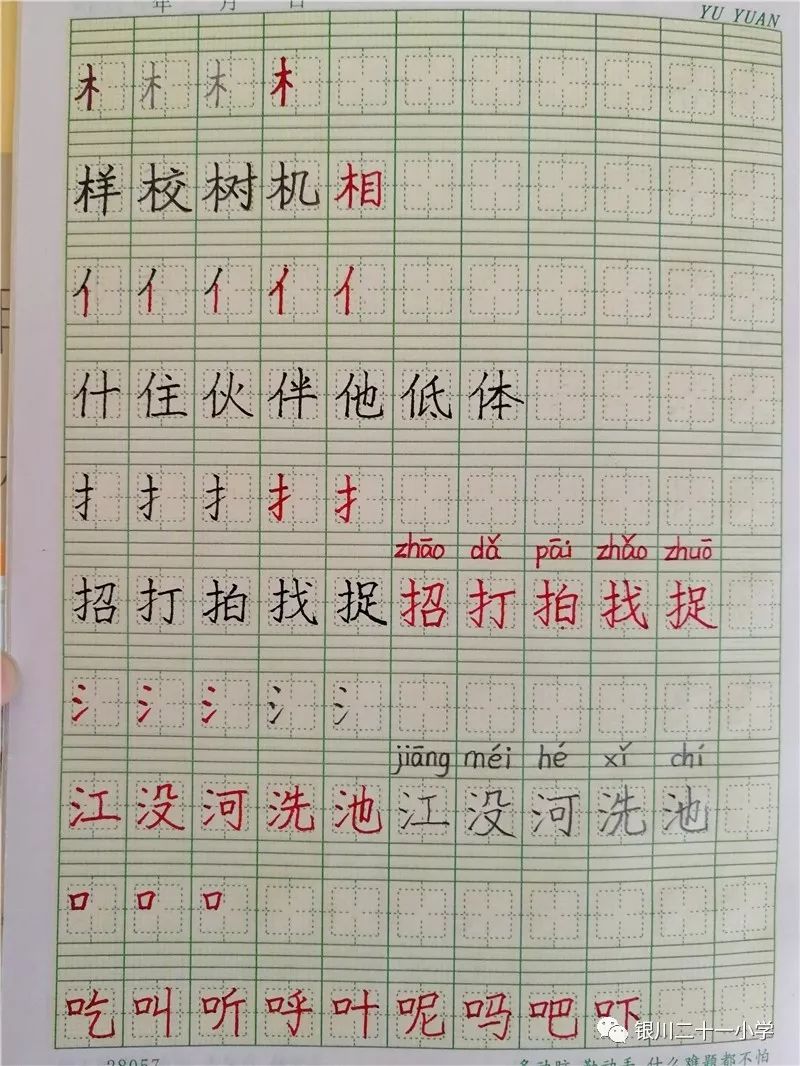 年 月 日
YU YUAN
木 木 木 木
样 校 树 机 相
亻 亻 亻 亻 亻
什 住 伙 伴 他 低 体
扌 扌 扌 扌 扌
zhāo dǎ pāi zhǎo zhuō
招 打 拍 找 捉 招 打 拍 找 捉
氵 氵 氵 氵 氵
jiāng méi hé xǐ chí
江 没 河 洗 池 江 没 河 洗 池
口 口 口
吃 叫 听 呼 叶 呢 吗 吧 吓
银川二十一小学
28057 多动脑 勤动手 什么难题都不怕